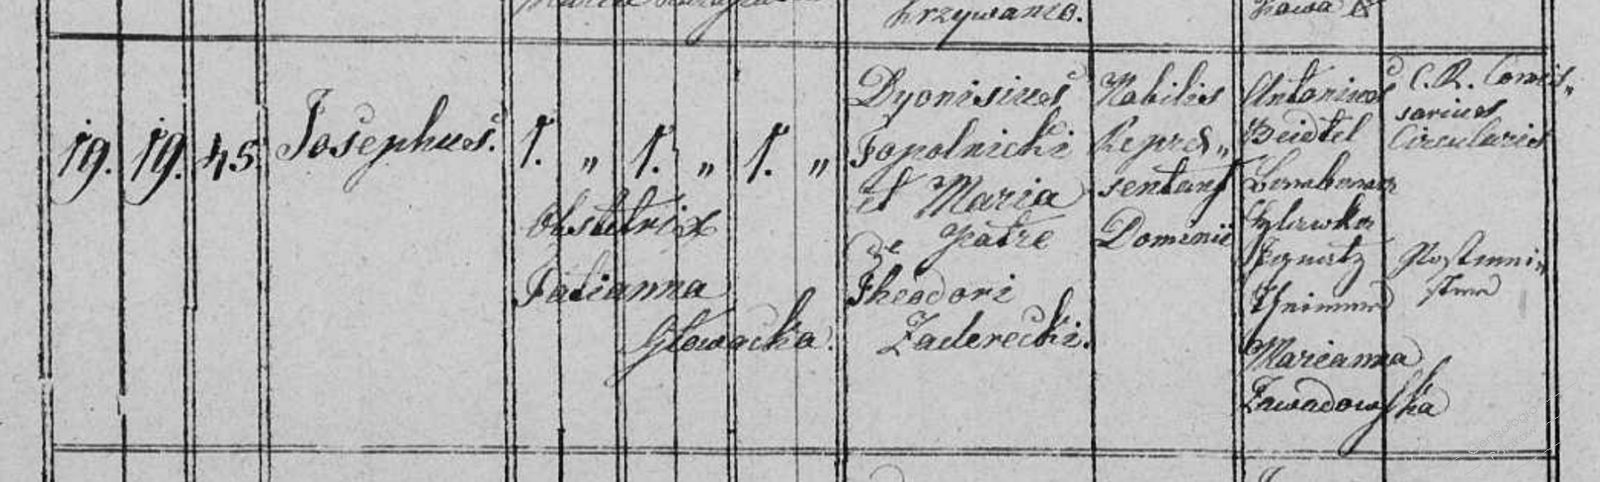 Krzywanio.
19. 19. 45. Josephus. 1. „ 1. „ 1. „
Obstetrix
Julianna
Głowacka.
Dyonisius
Topolnicki
et Maria
patre
Theodori
Zaderecki.
Nobilis
Repræ„
sentans
Dominii
Antonius
Beidtel
Barbara
Ignatz
Marianna
Zawadowska
C. R. Comis„
sarius
Circularis